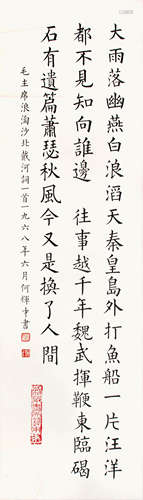 大雨落幽燕白浪滔天秦皇島外打魚船一片汪洋
都不見知向誰邊 往事越千年魏武揮鞭東臨碣
石有遺篇蕭瑟秋風今又是換了人間
毛主席浪淘沙北戴河詞一首一九六八年六月何輝書